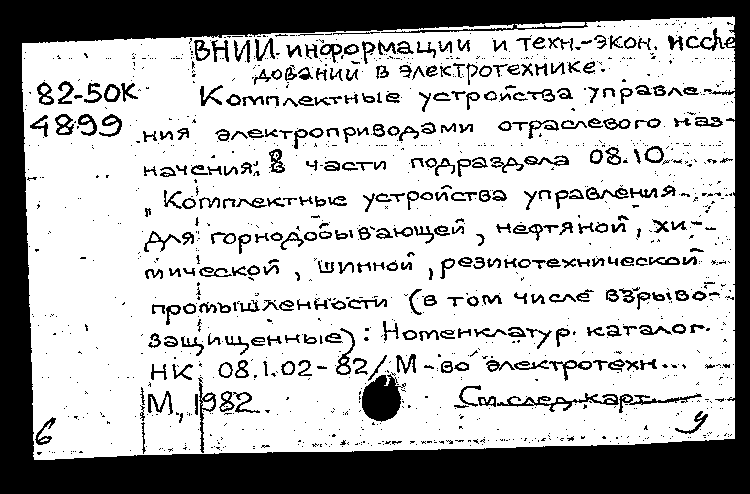 ВНИИ информации и техн.-экон. иссле
дований в электротехнике.
82-50К Комплектные устройства управле-
4899 ния электроприводами отраслевого наз-
начения: В части подраздела 08.10
„Комплектные устройства управления
для горнодобывающей, нефтяной, хи-
мической, шинной, резинотехнической
промышленности (в том числе взрыво-
защищенные): Номенклатур. каталог.
НК 08.1.02-82/ М-во электротехн...
М., 1982. См. след. карт.
6 У